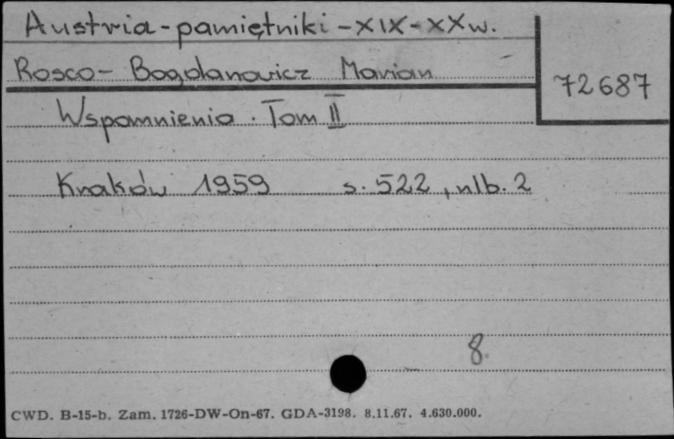 Austria - pamiętniki - XIX - XX w.
Rosco - Bogdanowicz Marian
72687
Wspomnienia. Tom II
Kraków 1959 s. 522, nlb. 2
8.
CWD. B-15-b. Zam. 1726-DW-On-67. GDA-3198. 8.11.67. 4.630.000.